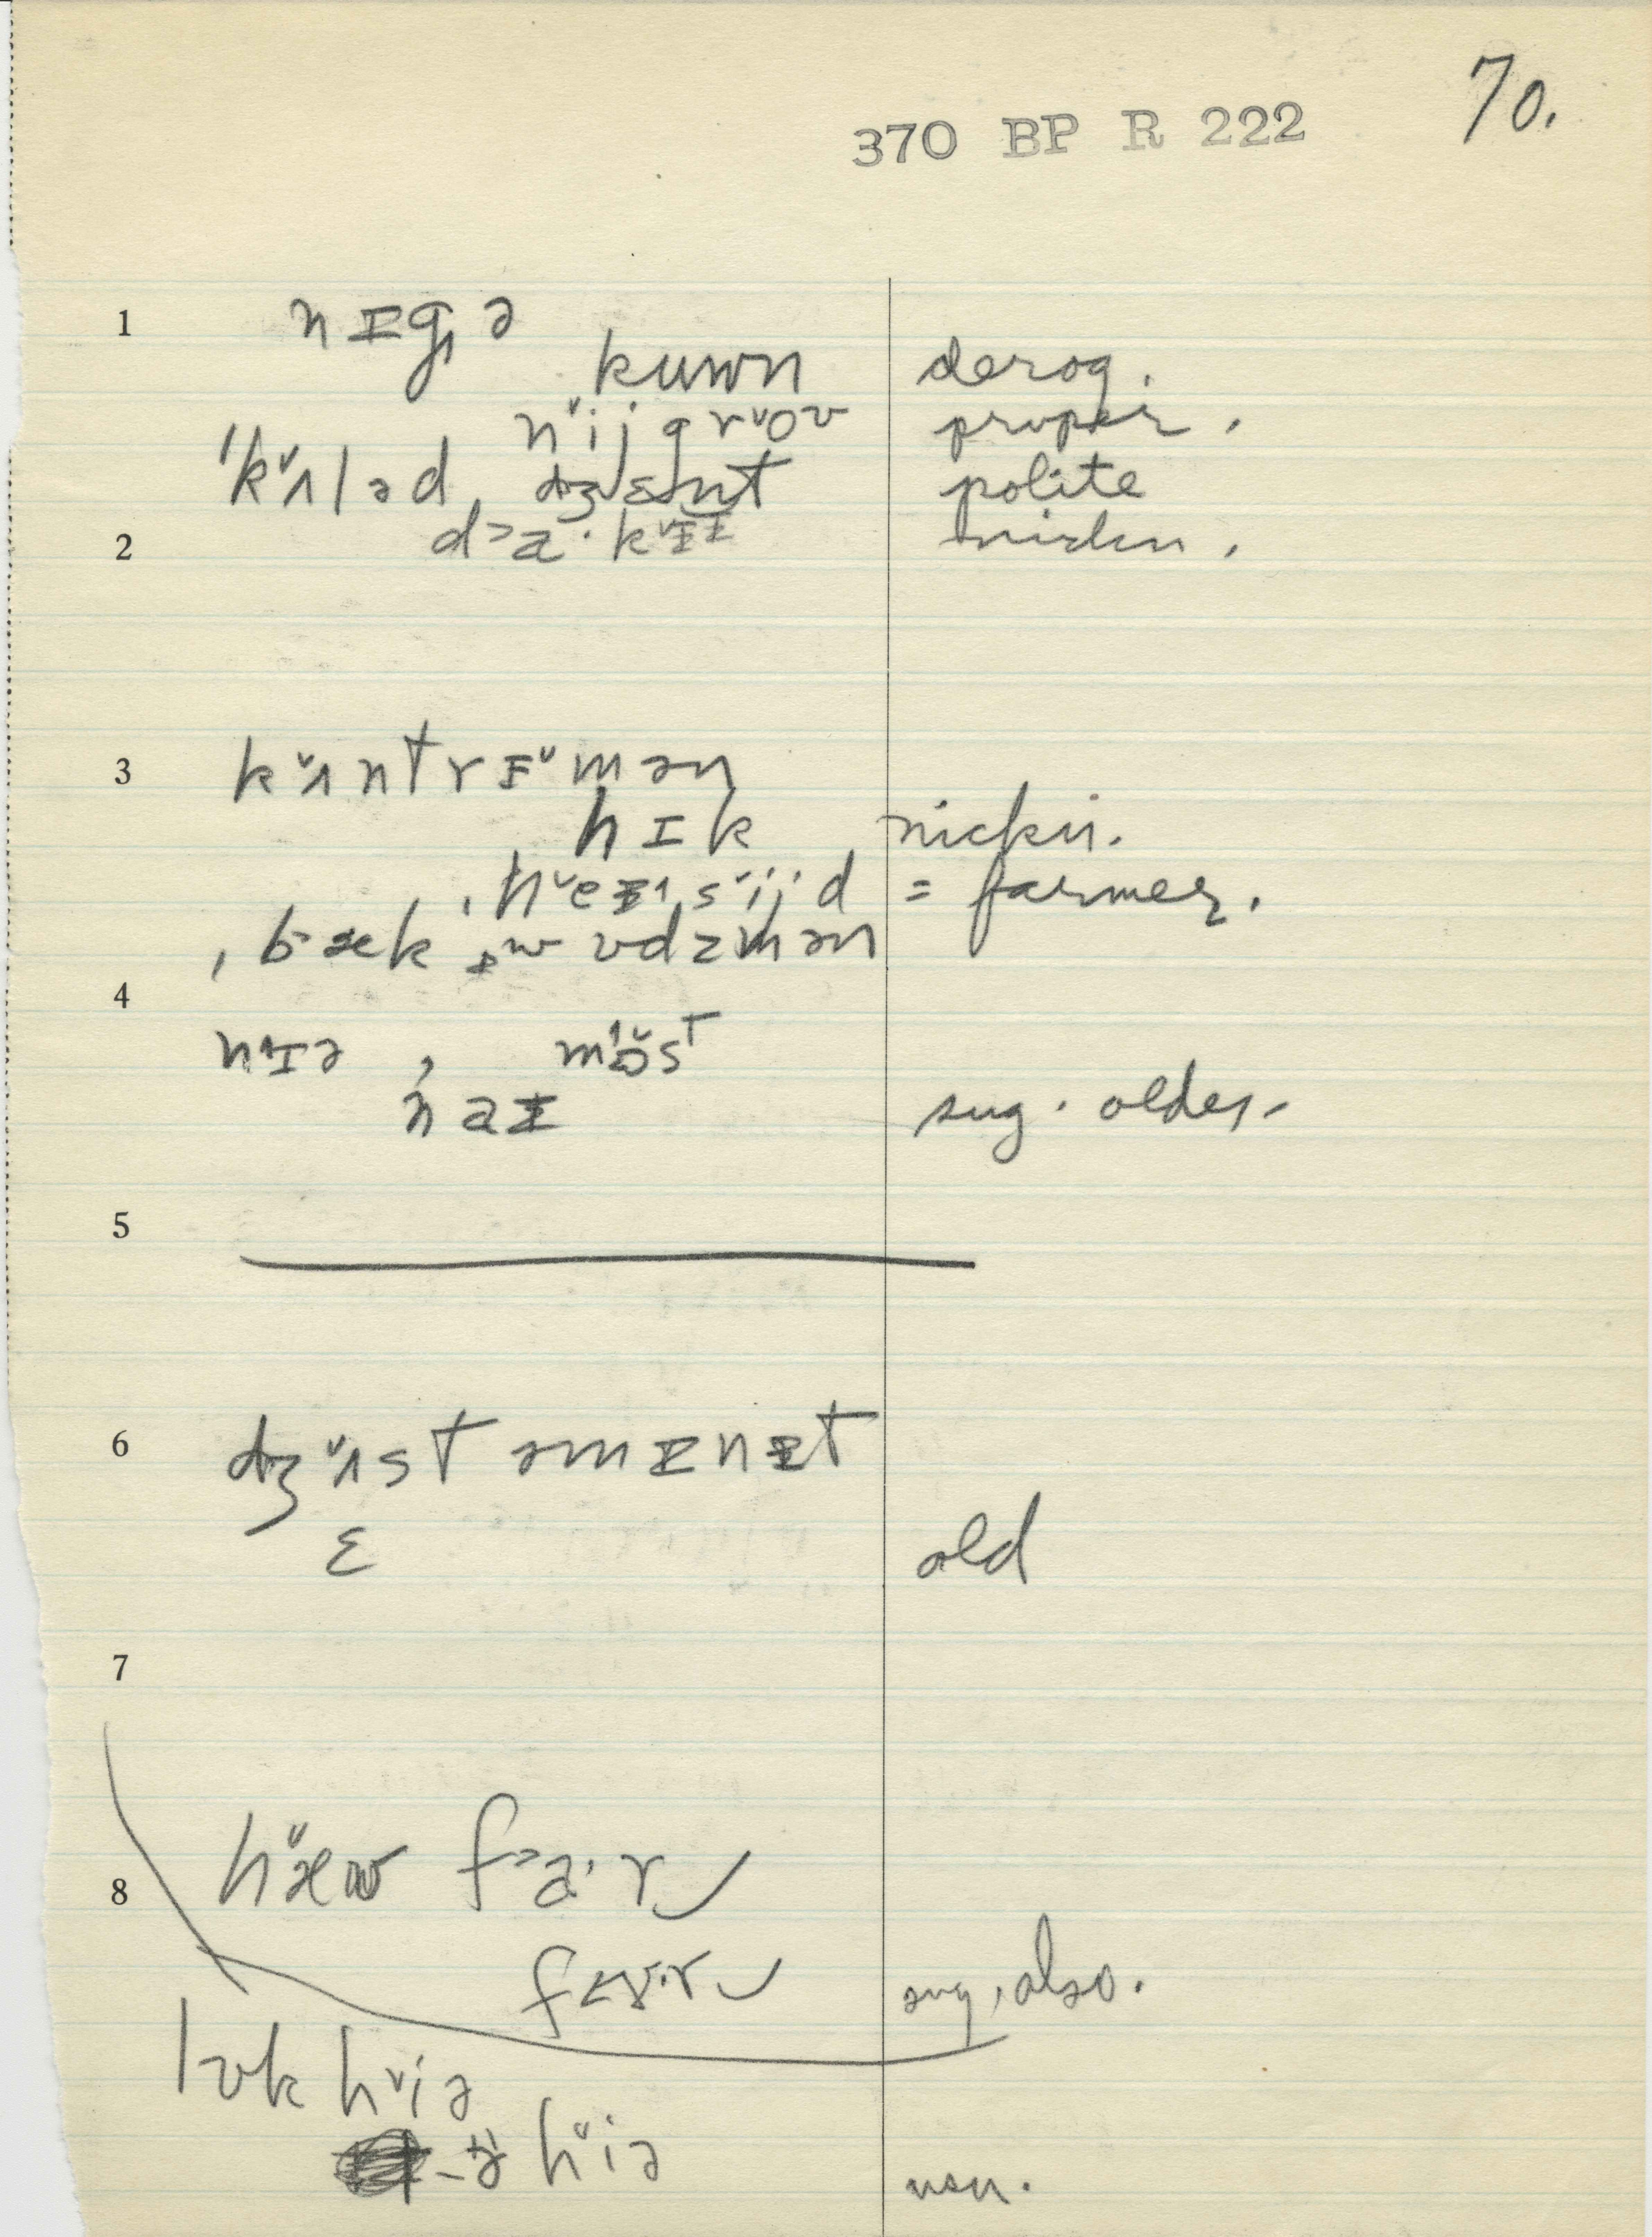 70.
370 BP R 222
1 nɪgə
kuwn derog.
n˅ijgr˅oʊ proper.
ˈk˅ʌləd dʒɛnt polite
2 d˃a·k˅ɪɪ
3 k˅ʌntrɪ˅mən
hɪk nickn.
ˌh˅eɪˌs˅ijd = farmer.
ˌbæk ˌwʊdzmən
4 nɪə, m˅ɔst
naɪ sug. older.
5
6 dʒ˅ʌst əmɪnɪt
ɛ old
7
8 h˅æw f˃a·r
f˂ɤ·r sug. also.
lʊk h˅iə
h˅iə usu.